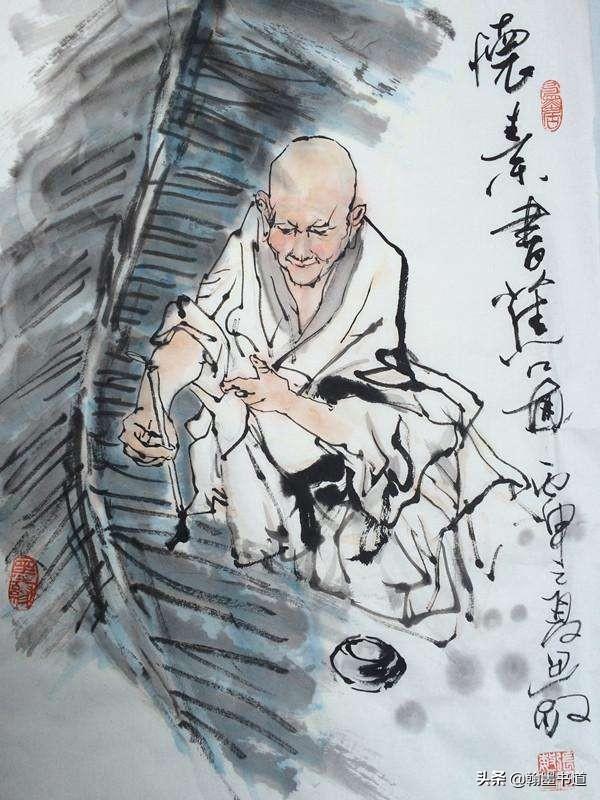 懷素書蕉圖 丙申之夏
头条 @翰墨书道